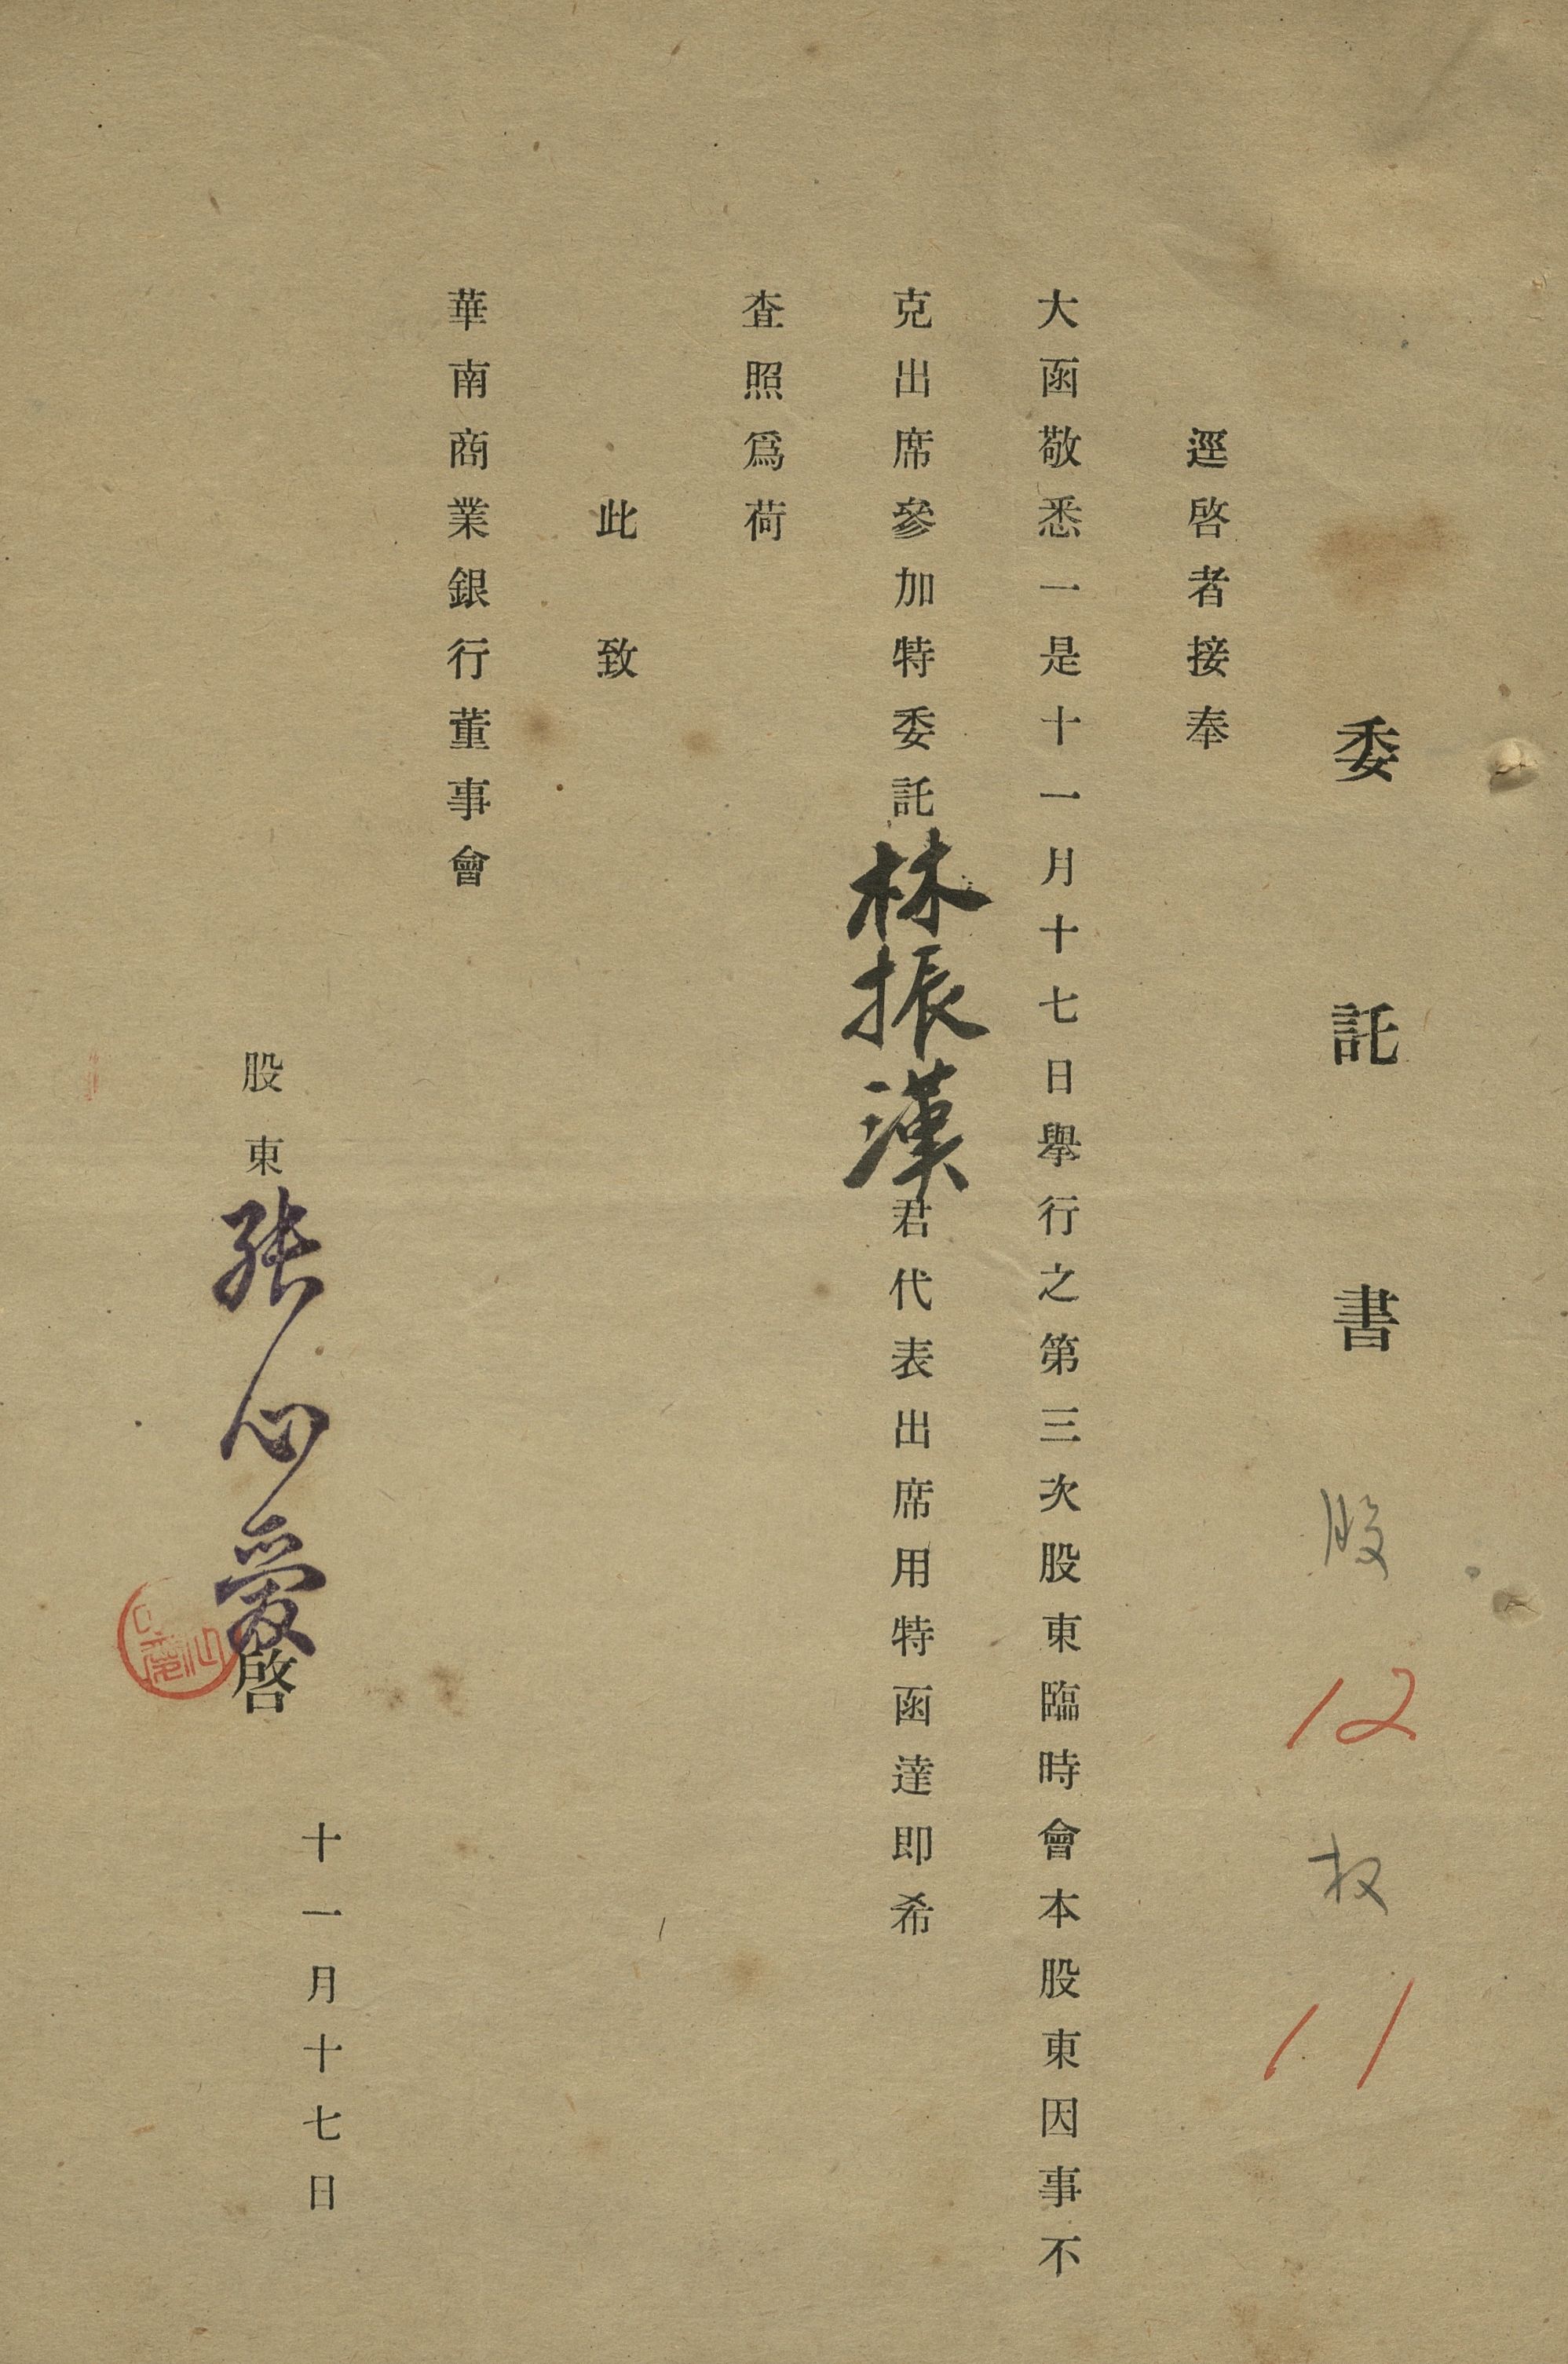 委託書 股 12 权 11
逕啓者接奉
大函敬悉一是十一月十七日舉行之第三次股東臨時會本股東因事不
克出席參加特委託林振漢君代表出席用特函達即希
査照爲荷
此致
華南商業銀行董事會
十一月十七日
股東張心愛啓